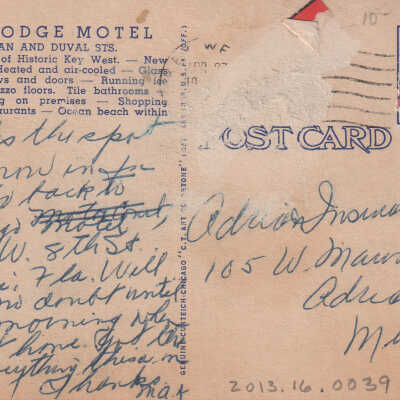 ODGE MOTEL
AN AND DUVAL STS.
of Historic Key West. — New
Heated and air-cooled — Glass
ws and doors — Running ice
zzo floors. Tile bathrooms
g on premises — Shopping
aurants — Ocean beach within
10-
POST CARD
GENUINE CURTEICH-CHICAGO "C.T. ART
s the spot
now in
back to
Motel
W. 8th St.
Fla. Will
no doubt until
morning when
home. Got the
everything
Thanks Max
Adrian Insura
105 W. Maum
Adria
Mi
2013.16.0039